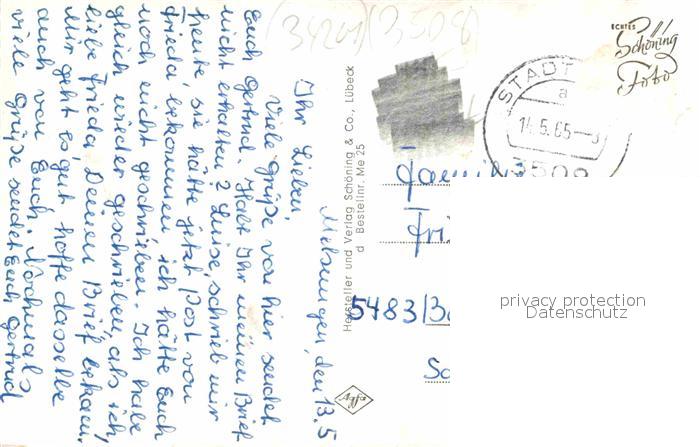 Melsungen, den 13.5
Ihr Lieben,
Viele Grüße von hier sendet
Euch Gertrud. Habt Ihr meinen Brief
nicht erhalten? Luise, schrieb mir
heute, sie hätte jetzt Post von
Frieda bekommen ich hätte Euch
noch nicht geschrieben. Ich habe
gleich wieder geschrieben, als ich,
liebe Frieda Deinen Brief bekam.
Mir geht es gut hoffe dasselbe
auch von Euch. Nochmals
viele Grüße sendet Euch Gertrud
Hersteller und Verlag Schöning & Co., Lübeck
d Bestellnr. Me 25
Agfa
(34201) (3508)
ECHTES
Schöning
Foto
STADT
a
14.5.65-
3508
Fri
5483/Ba
privacy protection
Datenschutz
So